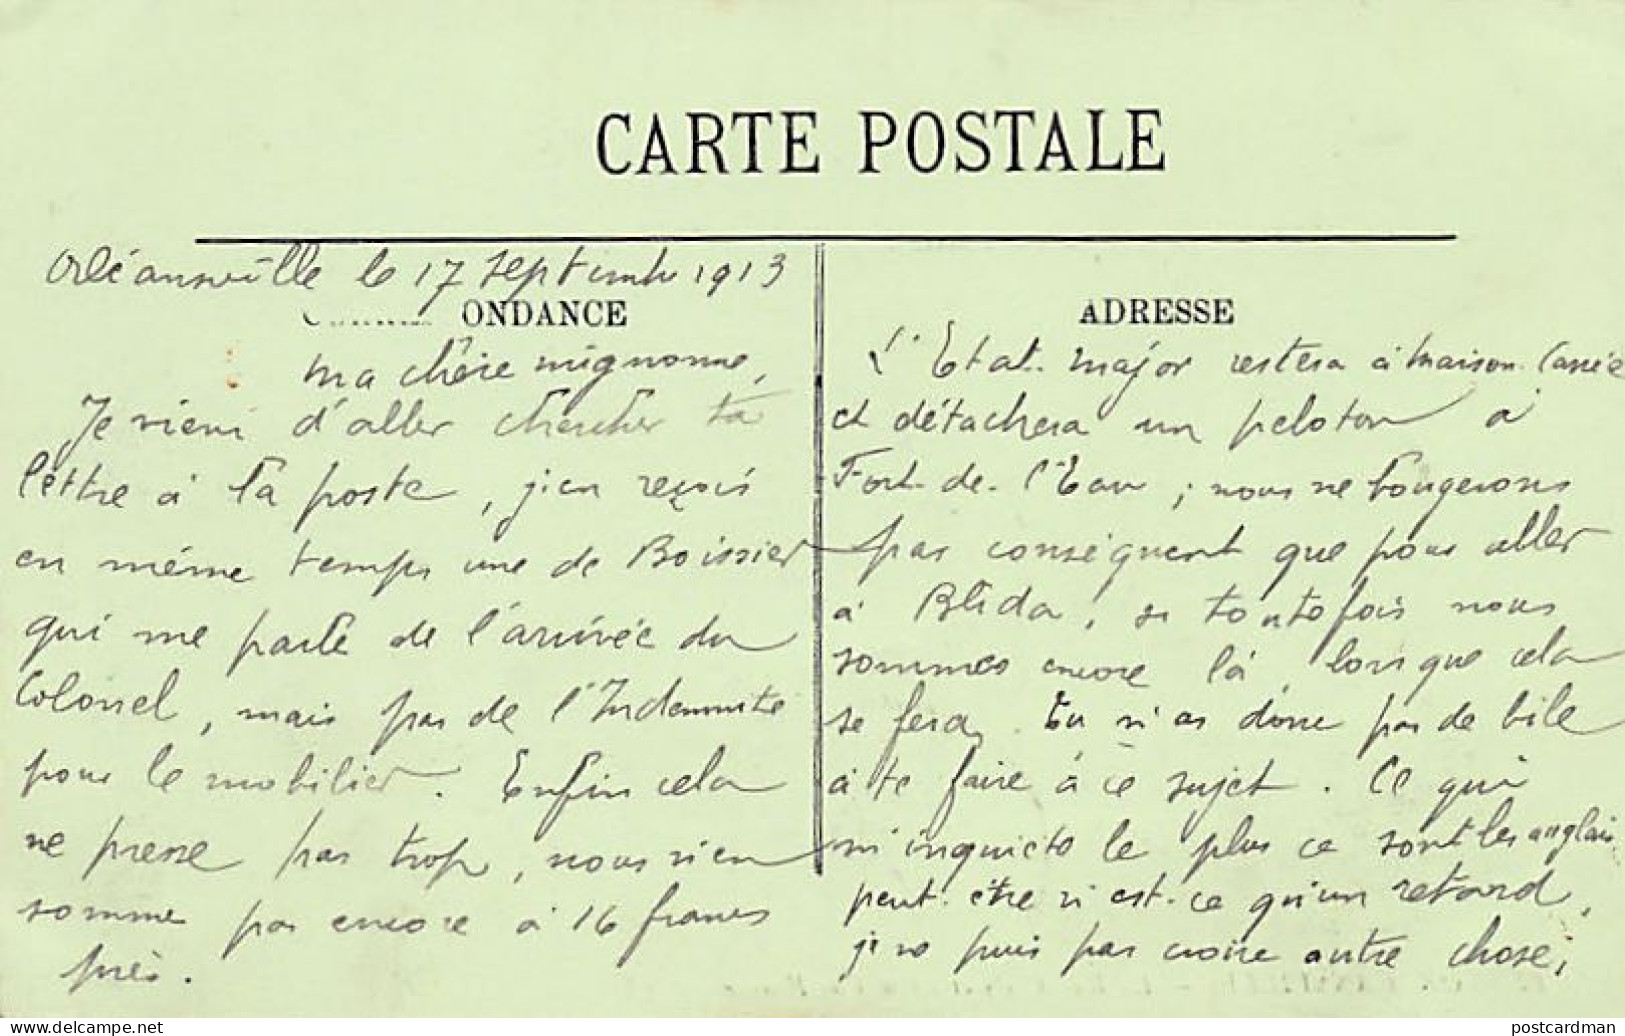 CARTE POSTALE
Orléansville le 17 septembre 1913
ONDANCE
ma chère mignonne,
Je viens d'aller chercher ta
lettre à la poste, j'en reçois
en même temps une de Boissier
qui me parle de l'arrivée du
Colonel, mais pas de l'Indemnité
pour le mobilier. Enfin cela
ne presse pas trop, nous n'en
somme pas encore à 16 francs
près.
ADRESSE
L'Etat-major restera à Maison-Carrée
et détachera un peloton à
Fort-de-l'Eau ; nous ne bougerons
par conséquent que pour aller
à Blida, si toutefois nous
sommes encore là lorsque cela
se fera. Tu n'as donc pas de bile
à te faire à ce sujet. Ce qui
m'inquiète le plus ce sont les anglais
peut-être n'est-ce qu'un retard,
je ne puis pas croire autre chose;
delcampe.net
postcardman